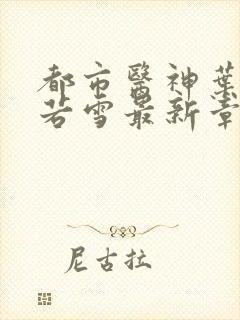 都市醫神葉
若雪最新章
尼古拉